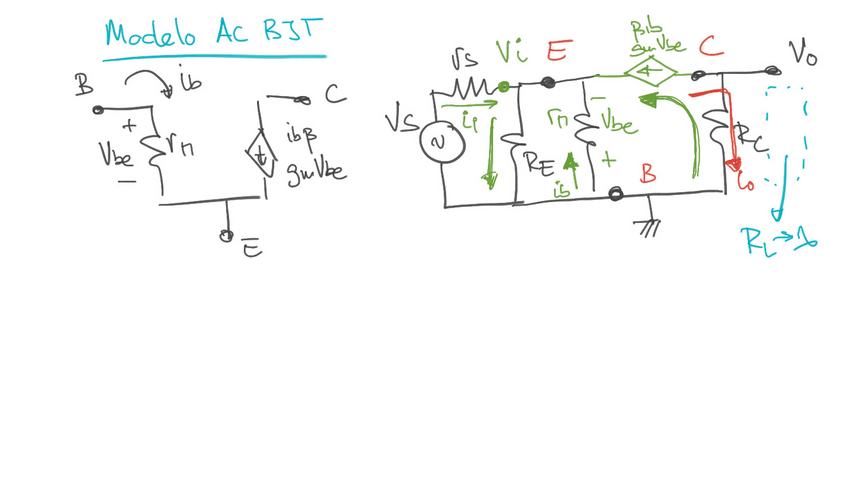 Modelo AC BJT
B
ib
C
+
Vbe
rπ
-
ibβ
gmVbe
E
rs
Vi
E
βib
gmVbe
C
Vo
Vs
ii
RE
rπ
-
Vbe
+
ib
B
RC
io
RL→